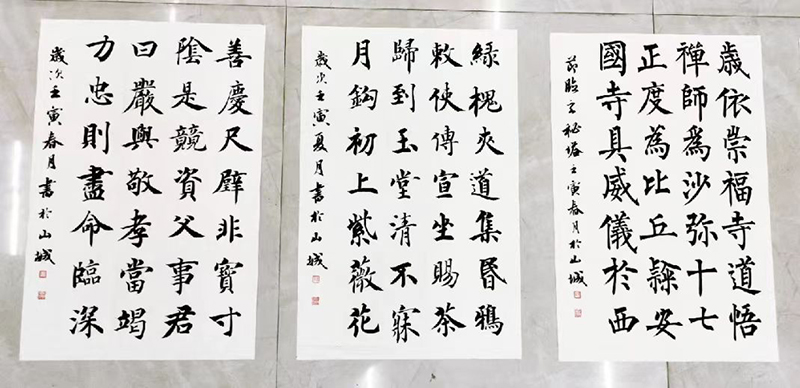 歲依崇福寺道悟
禪師為沙弥十七
正度為比丘隸安
國寺具威儀於西
節臨玄秘塔壬寅春月於山城
綠槐夾道集昬鴉
敕使傳宣坐賜茶
歸到玉堂清不寐
月鈎初上紫薇花
歲次壬寅夏月書於山城
善慶尺璧非寶寸
陰是競資父事君
曰嚴與敬孝當竭
力忠則盡命臨深
歲次壬寅春月書於山城